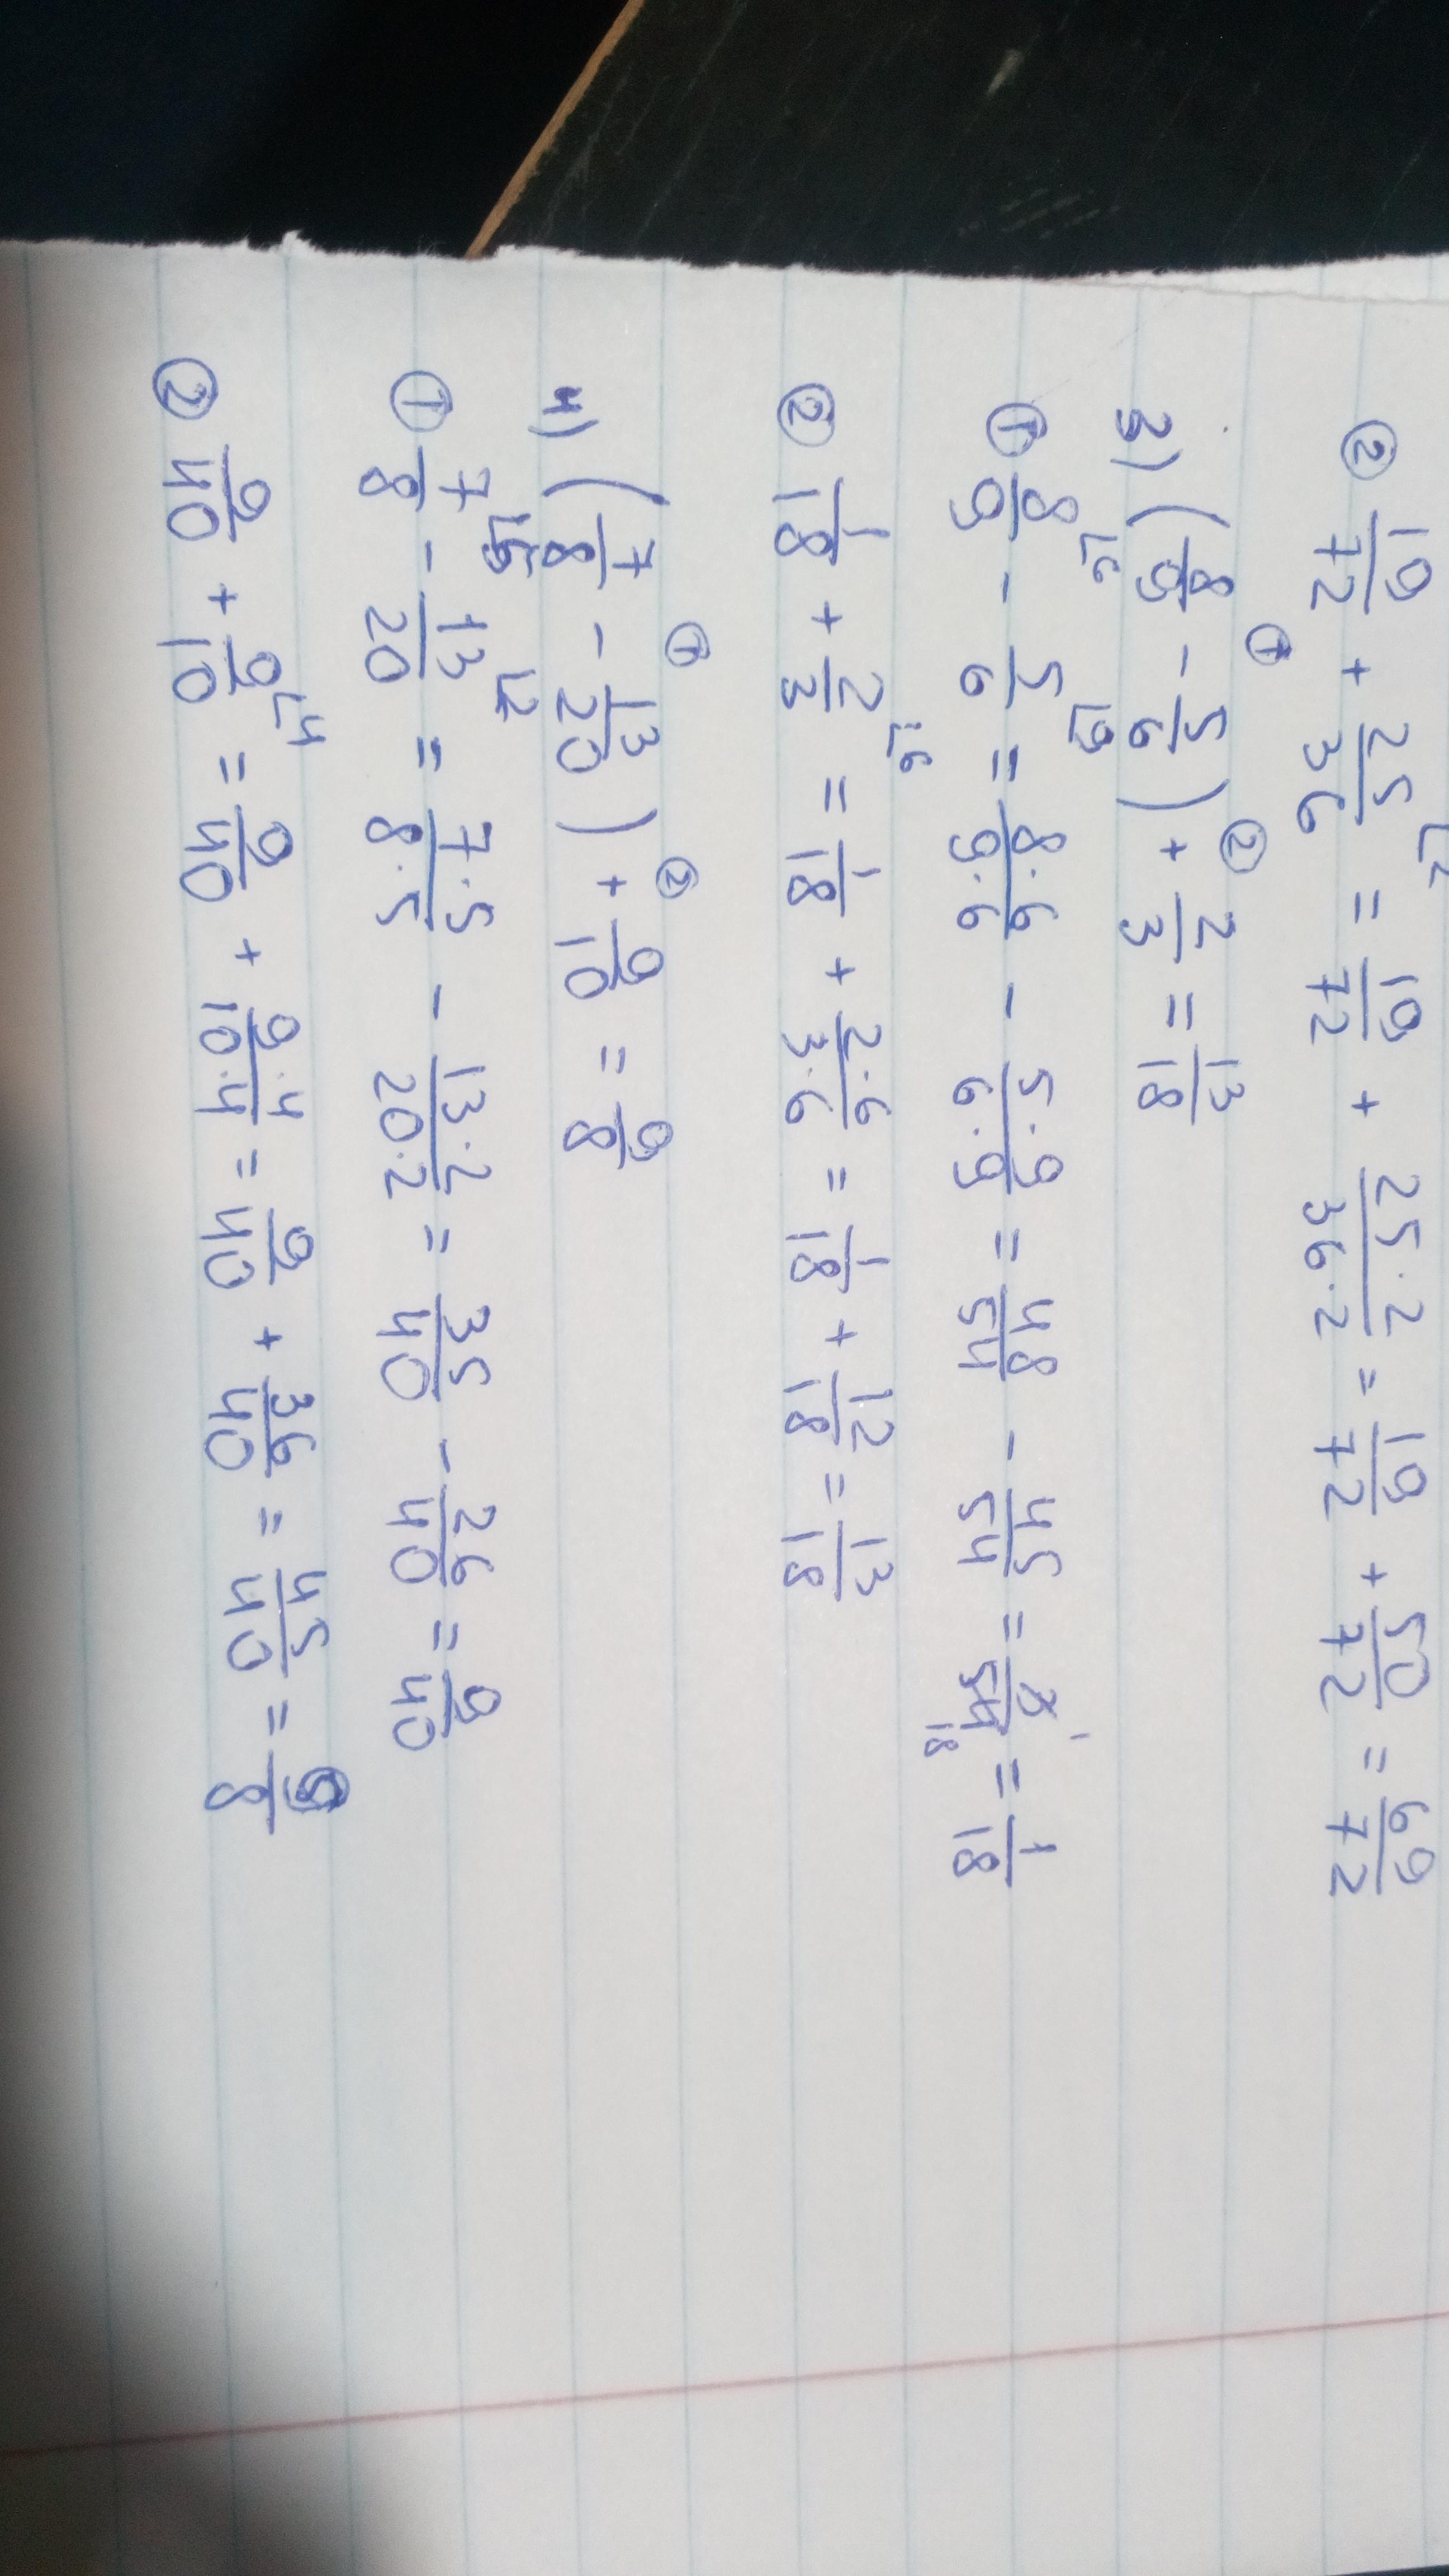 ② 19/72 + 25/36 ∟2 = 19/72 + 25·2/36·2 = 19/72 + 50/72 = 69/72
① ②
3) (8/9 - 5/6) + 2/3 = 13/18
① 8/9 ∟6 - 5/6 ∟9 = 8·6/9·6 - 5·9/6·9 = 48/54 - 45/54 = 3/54 1 18 = 1/18
② 1/18 + 2/3 ∟6 = 1/18 + 2·6/3·6 = 1/18 + 12/18 = 13/18
① ②
4) (7/8 - 13/20) + 9/10 = 9/8
① 7/8 ∟5 - 13/20 ∟2 = 7·5/8·5 - 13·2/20·2 = 35/40 - 26/40 = 9/40
② 9/40 + 9/10 ∟4 = 9/40 + 9·4/10·4 = 9/40 + 36/40 = 45/40 = 9/8